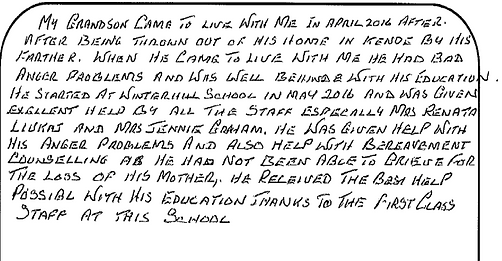 MY GRANDSON CAME TO LIVE WITH ME IN APRIL 2016 AFTER.
AFTER BEING THROWN OUT OF HIS HOME IN KENDE BY HIS
FARTHER. WHEN HE CAME TO LIVE WITH ME HE HAD BAD
ANGER PROBLEMS AND WAS WELL BEHINDE WITH HIS EDUCATION.
HE STARTED AT WINTERHILL SCHOOL IN MAY 2016 AND WAS GIVEN
EXELLENT HELP BY ALL THE STAFF ESPECALLY MRS RENATA
LIUKAS AND MRS JENNIE GRAHAM. HE WAS GIVEN HELP WITH
HIS ANGER PROBLEMS AND ALSO HELP WITH BEREAVEMENT
COUNSELLING AS HE HAD NOT BEEN ABLE TO GRIEVE FOR
THE LOSS OF HIS MOTHER, HE RECEIVED THE BEST HELP
POSSIBL WITH HIS EDUCATION THANKS TO THE FIRST CLASS
STAFF AT THIS SCHOOL